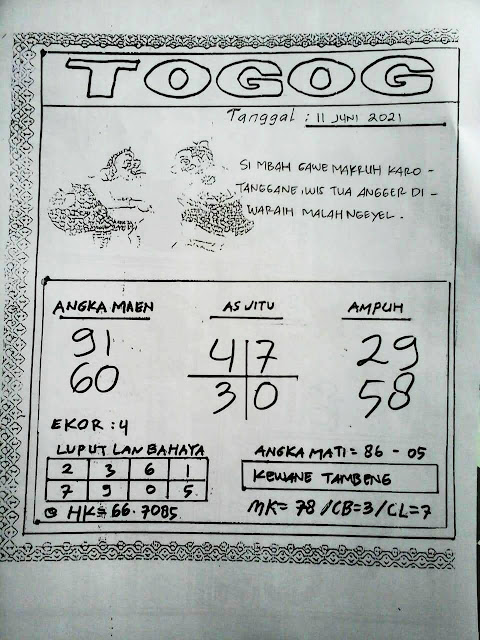 TOGOG
Tanggal : 11 JUNI 2021
SI MBAH GAWE MAKRUH KARO -
TANGGANE, WIS TUA ANGGER DI -
WARAIH MALAH NGEYEL .
ANGKA MAEN AS JITU AMPUH
91 4 7 29
60 3 0 58
EKOR : 4
LUPUT LAN BAHAYA ANGKA MATI = 86 - 05
2 3 6 1 KEWANE TAMBENG
7 9 0 5
HK = 66. 7085 MK = 78 / CB = 3 / CL = 7